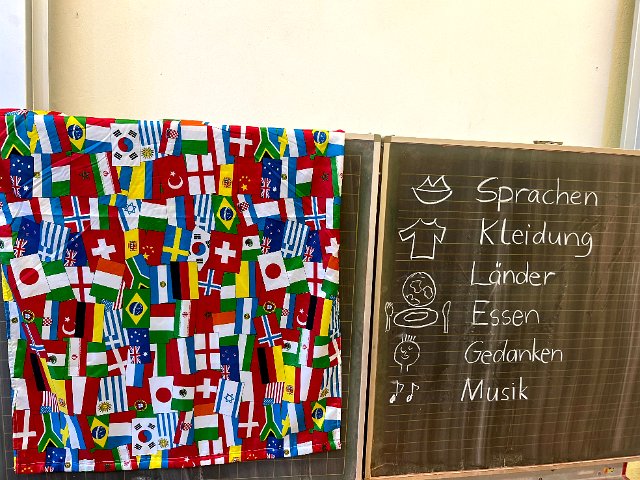 Sprachen
Kleidung
Länder
Essen
Gedanken
Musik